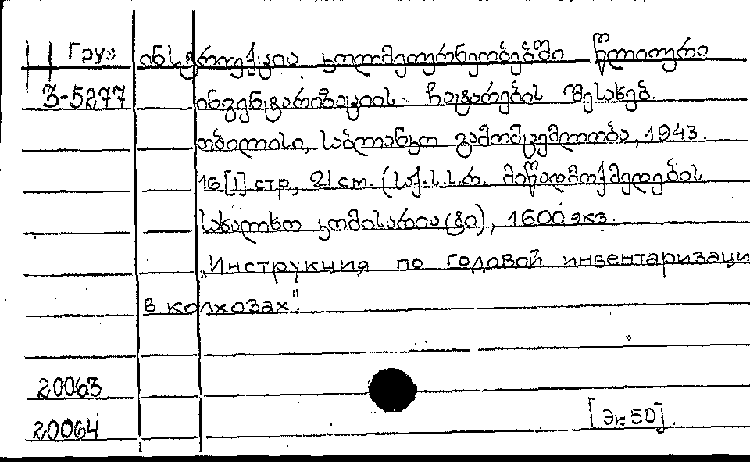 Груз ინსტრუქცია კოლმეურნეობებში წლიური
3-5277 ინვენტარიზაციის ჩატარების შესახებ.
თბილისი, საბლანკო გამომცემლობა, 1943.
16[1] стр, 21 см. (საქ.ს.ს.რ. მიწადმოქმედების
სახალხო კომისარია(ტი), 1600 экз.
„Инструкция по годовой инвентаризаци
в колхозах".
20063
20064 [Эк50].